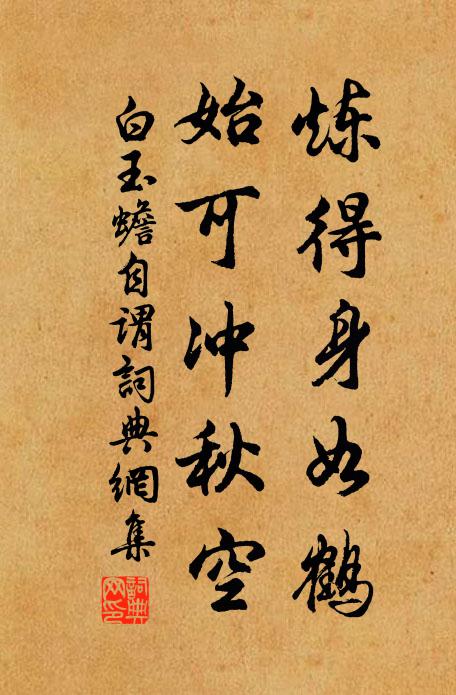 炼得身如鹤
始可冲秋空
白玉蟾自谓詞典網集
詞典网印